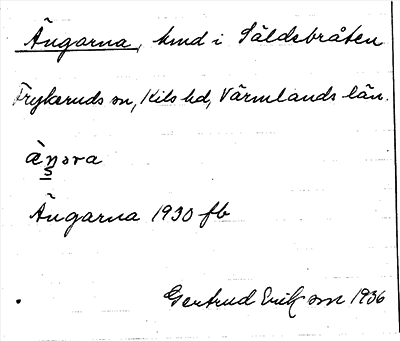 Ängarna, hmd i Säldebråten
Frykeruds sn, Kils hd, Värmlands län.
Ängarna 1930 fb
Gertrud Erikson 1936